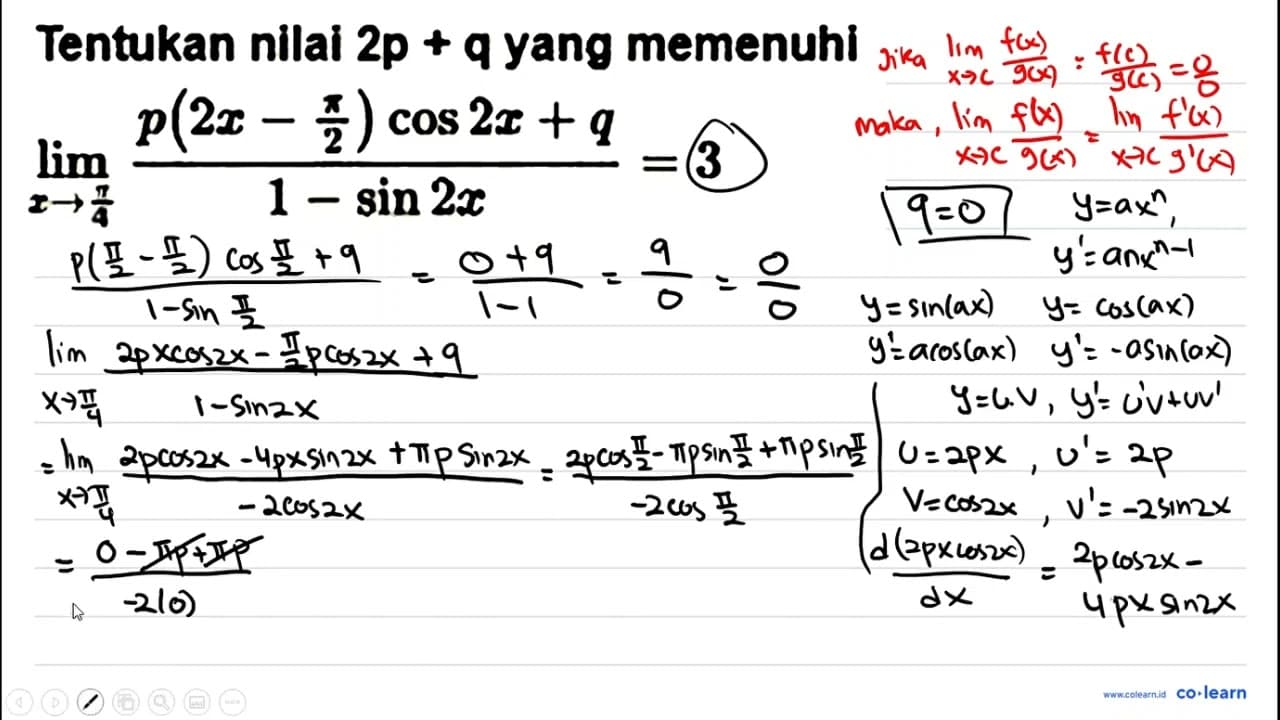 Tentukan nilai 2p + q yang memenuhi
lim x→π/4 p(2x − π/2) cos 2x + q / 1 − sin 2x = 3
p(π/2 - π/2) cos π/2 + q / 1-sin π/2 = 0+q / 1-1 = q/0 = 0/0
lim x→π/4 2pxcos2x - π/2 pcos2x + q / 1-sin2x
= lim x→π/4 2pcos2x - 4pxsin2x + πp sin2x / -2cos2x = 2pcos π/2 - πp sin π/2 + πp sin π/2 / -2cos π/2
= 0 - πp + πp / -2(0)
Jika lim x→c f(x)/g(x) = f(c)/g(c) = 0/0
maka, lim x→c f(x)/g(x) = lim x→c f'(x)/g'(x)
q=0
y=ax^n,
y'=anx^n-1
y=sin(ax) y= cos(ax)
y'=acos(ax) y'= -asin(ax)
y=u.v, y'= u'v+uv'
u=2px, u'= 2p
v=cos2x, v'=-2sin2x
d(2pxcos2x)/dx = 2pcos2x -
4px sin2x
www.colearn.id co·learn